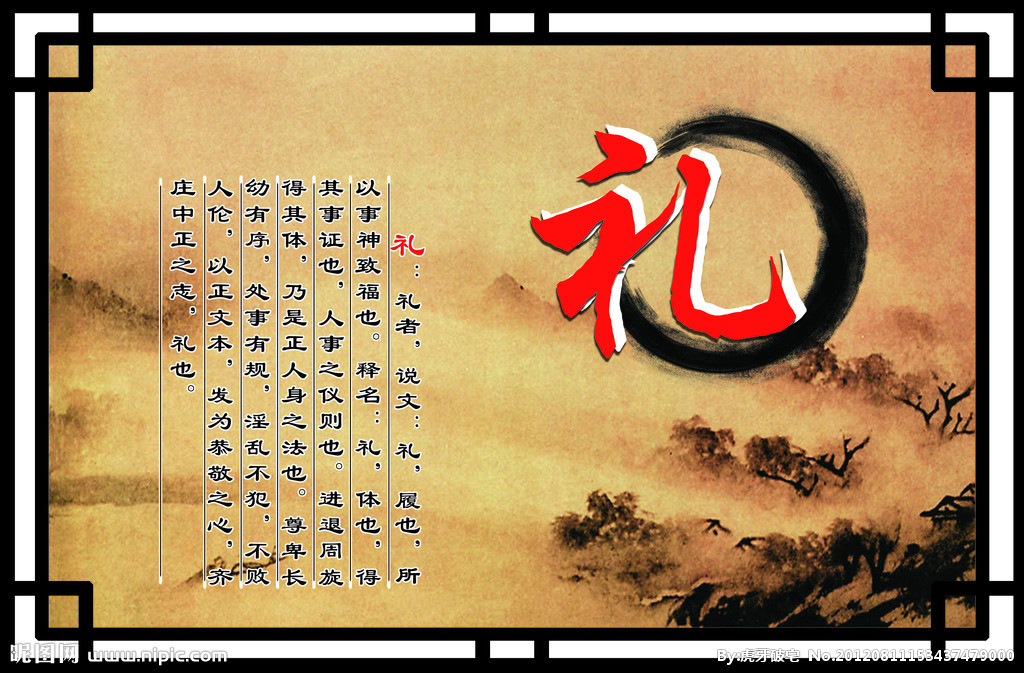 礼
礼：礼者，说文：礼，履也，所
以事神致福也。释名：礼，体也，得
其事证也，人事之仪则也。进退周旋
得其体，乃是正人身之法也。尊卑长
幼有序，处事有规，淫乱不犯，不败
人伦，以正文本，发为恭敬之心，齐
庄中正之志，礼也。
昵图网 www.nipic.com
By:虎牙破皂 No.20120811153437479000